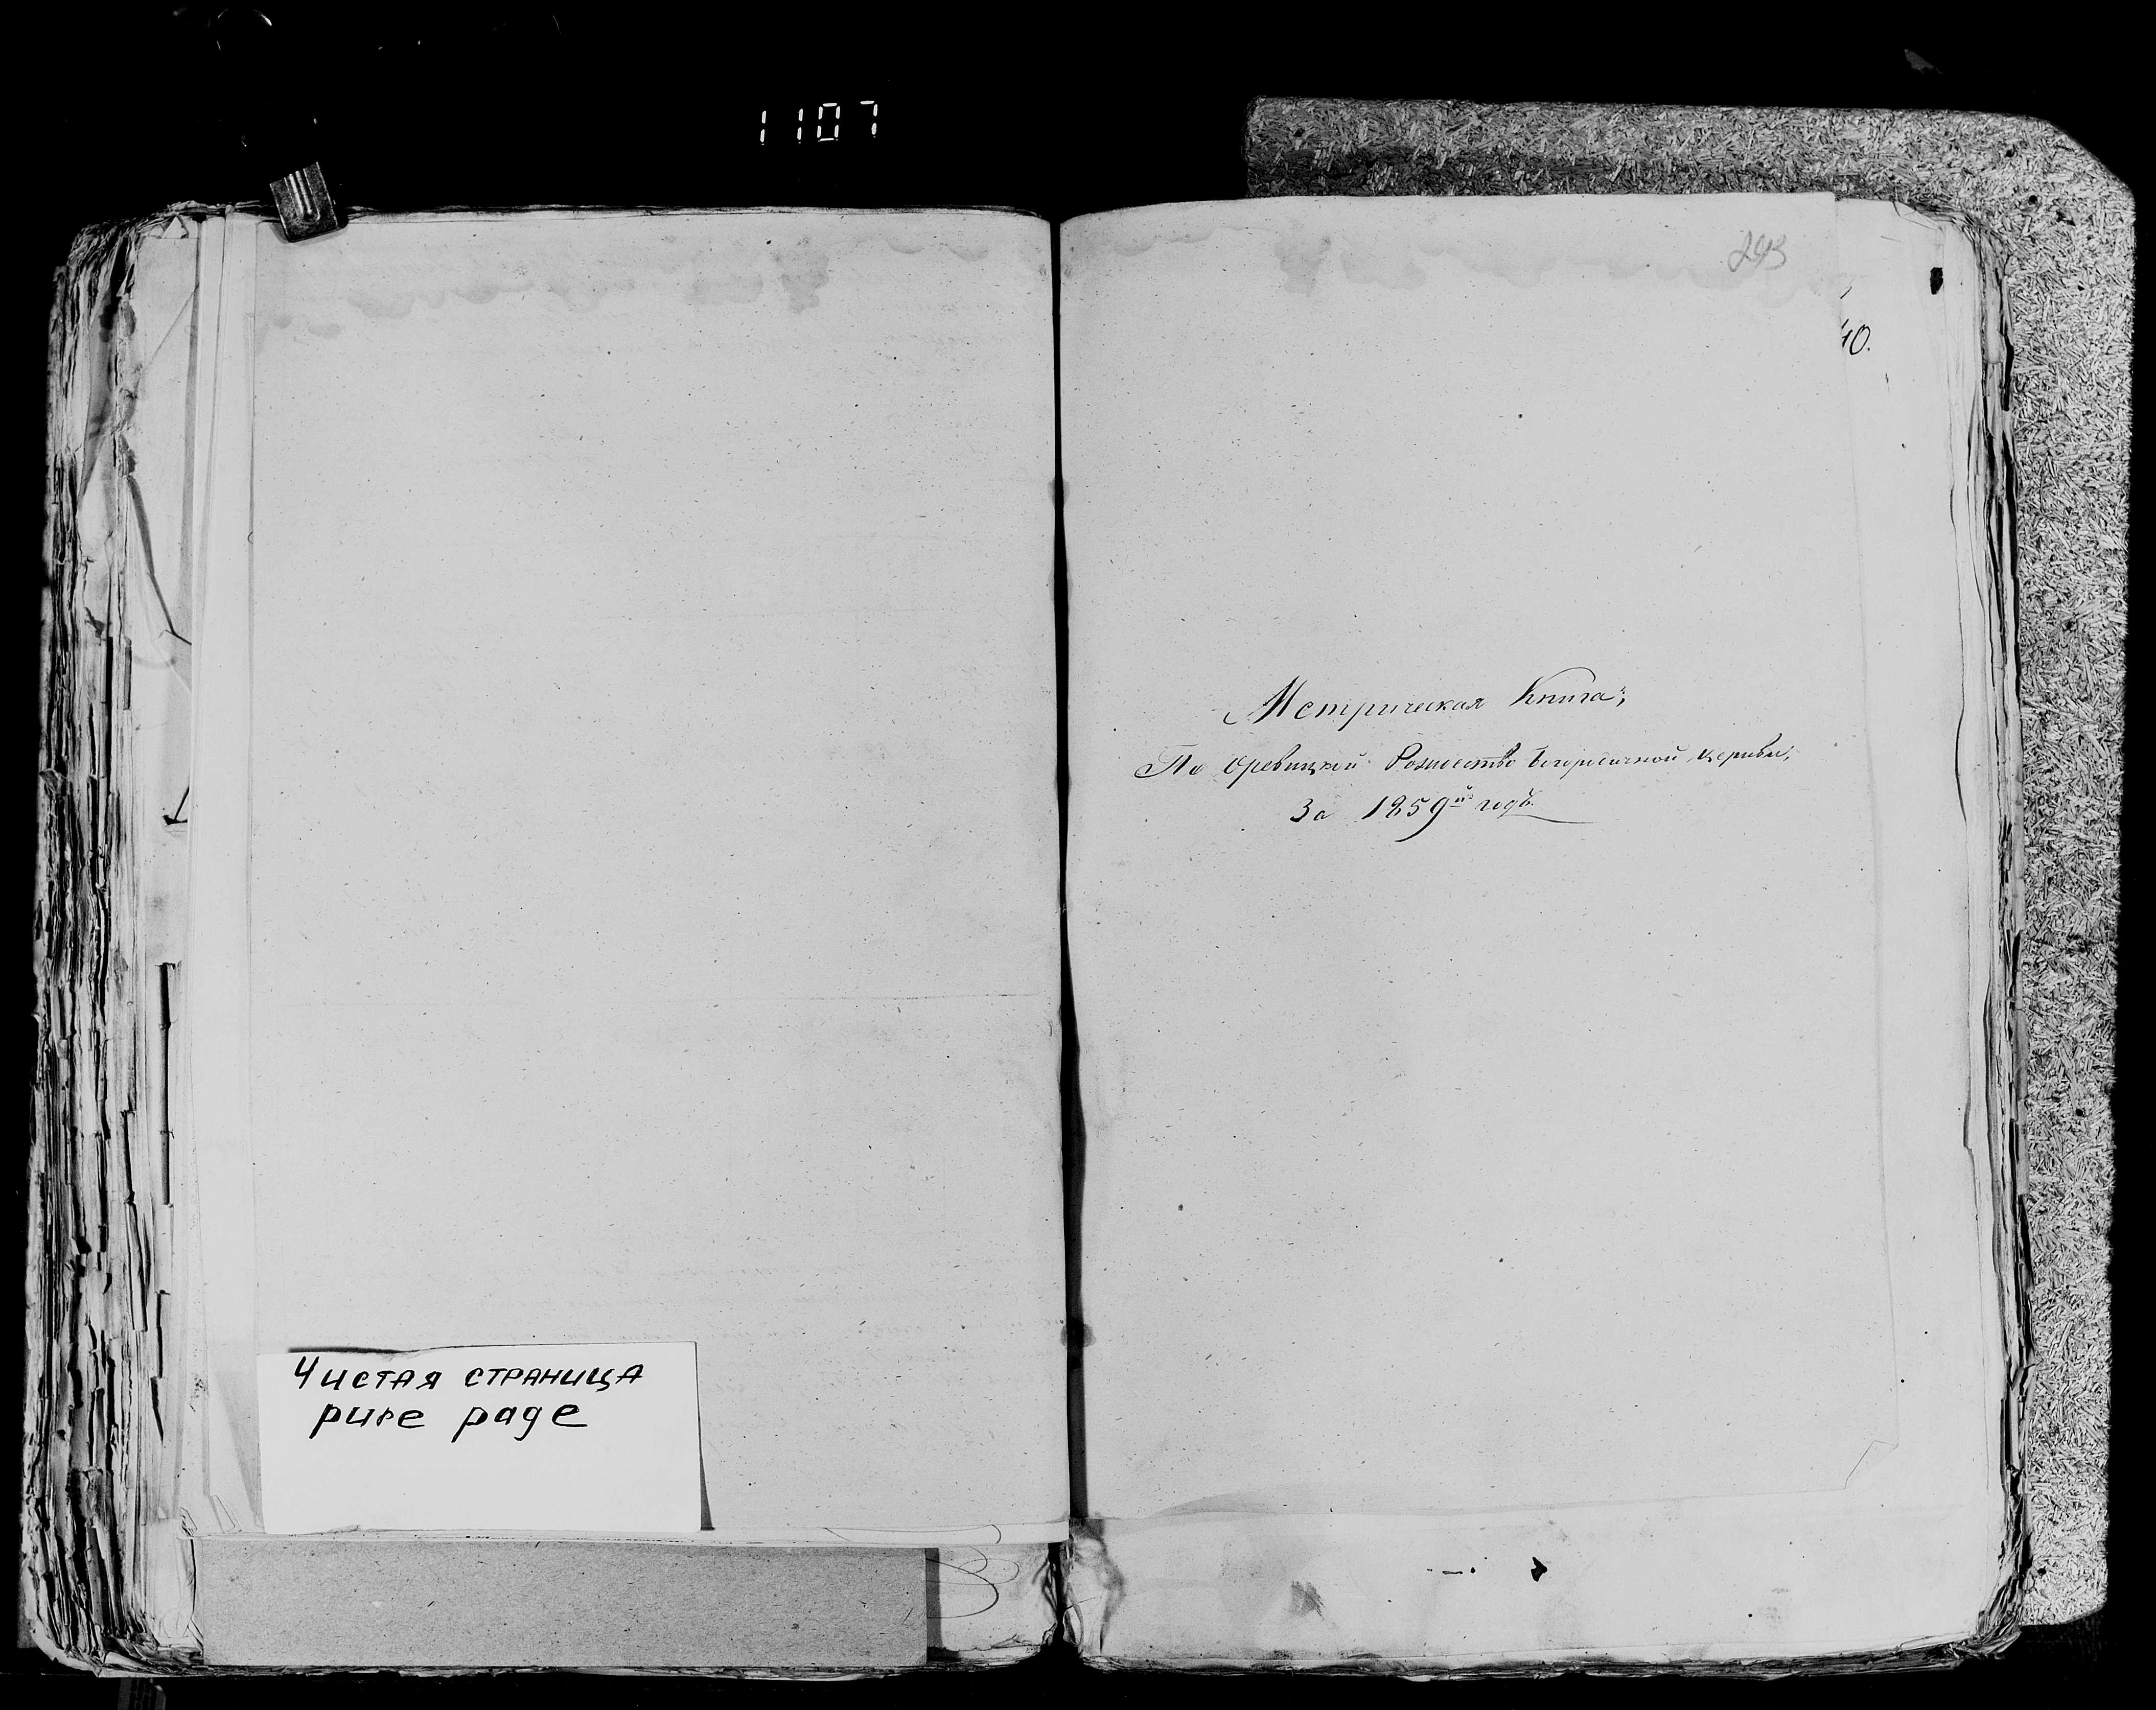 1107
293
40.
Метрическая Книга;
По Оревицкой Рождество Богородичной Церкви;
За 1859й годъ.
Чистая страница
pure page